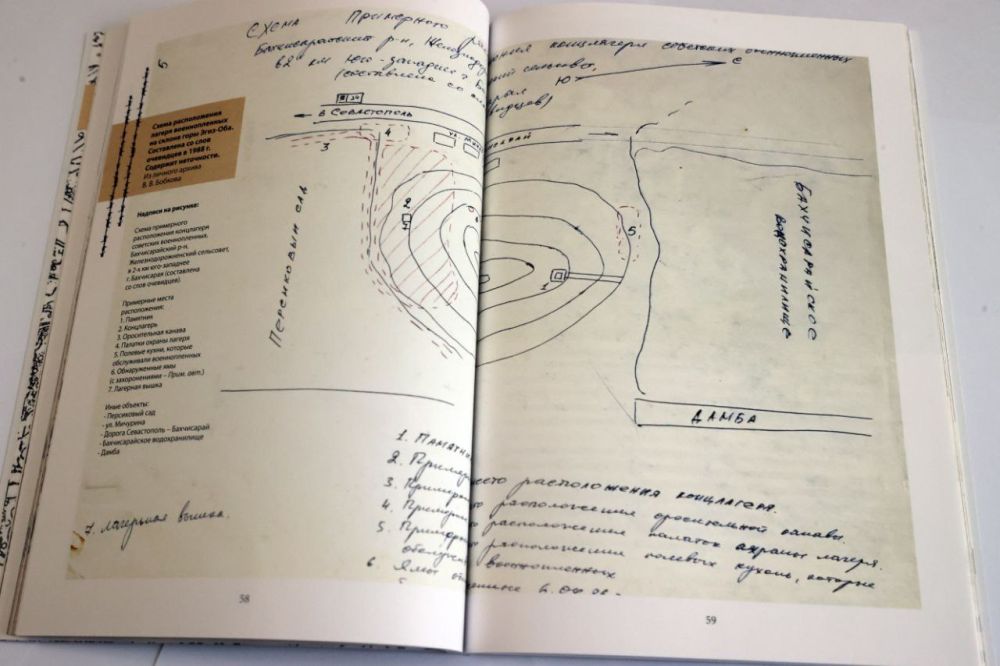 Схема Примерного
Бахчисарайский р-н,
(составлена со
концлагеря советских военнопленных
сельсовет,
Ю
С
5
Схема расположения
лагеря военнопленных
на склоне горы Эгиз-Оба.
Составлена со слов
очевидцев в 1988 г.
Содержит неточности.
Из личного архива
В. В. Бобкова
Надписи на рисунке:
Схема примерного
расположения концлагеря
советских военнопленных.
Бахчисарайский р-н,
Железнодорожненский сельсовет,
в 2-х км юго-западнее
г. Бахчисарая (составлена
со слов очевидцев).
Примерные места
расположения:
1. Памятник
2. Концлагерь
3. Оросительная канава
4. Палатки охраны лагеря
5. Полевые кухни, которые
обслуживали военнопленных
6. Обнаруженные ямы
(с захоронениями – Прим. авт.)
7. Лагерная вышка
Иные объекты:
- Персиковый сад
- ул. Мичурина
- Дорога Севастополь – Бахчисарай
- Бахчисарайское водохранилище
- Дамба
в Севастополь
3
4
5
1
Персиковый сад
Бахчисарайское
водохранилище
ДАМБА
1. Памятни
2. Пример
место расположения концлагеря.
3. Пример
расположения оросительной канавы.
4. Пример
расположения палаток охраны лагеря.
5. Пример
расположения полевых кухонь, которые
военнопленных
6. Ямы
7 лагерная вышка.
58
59